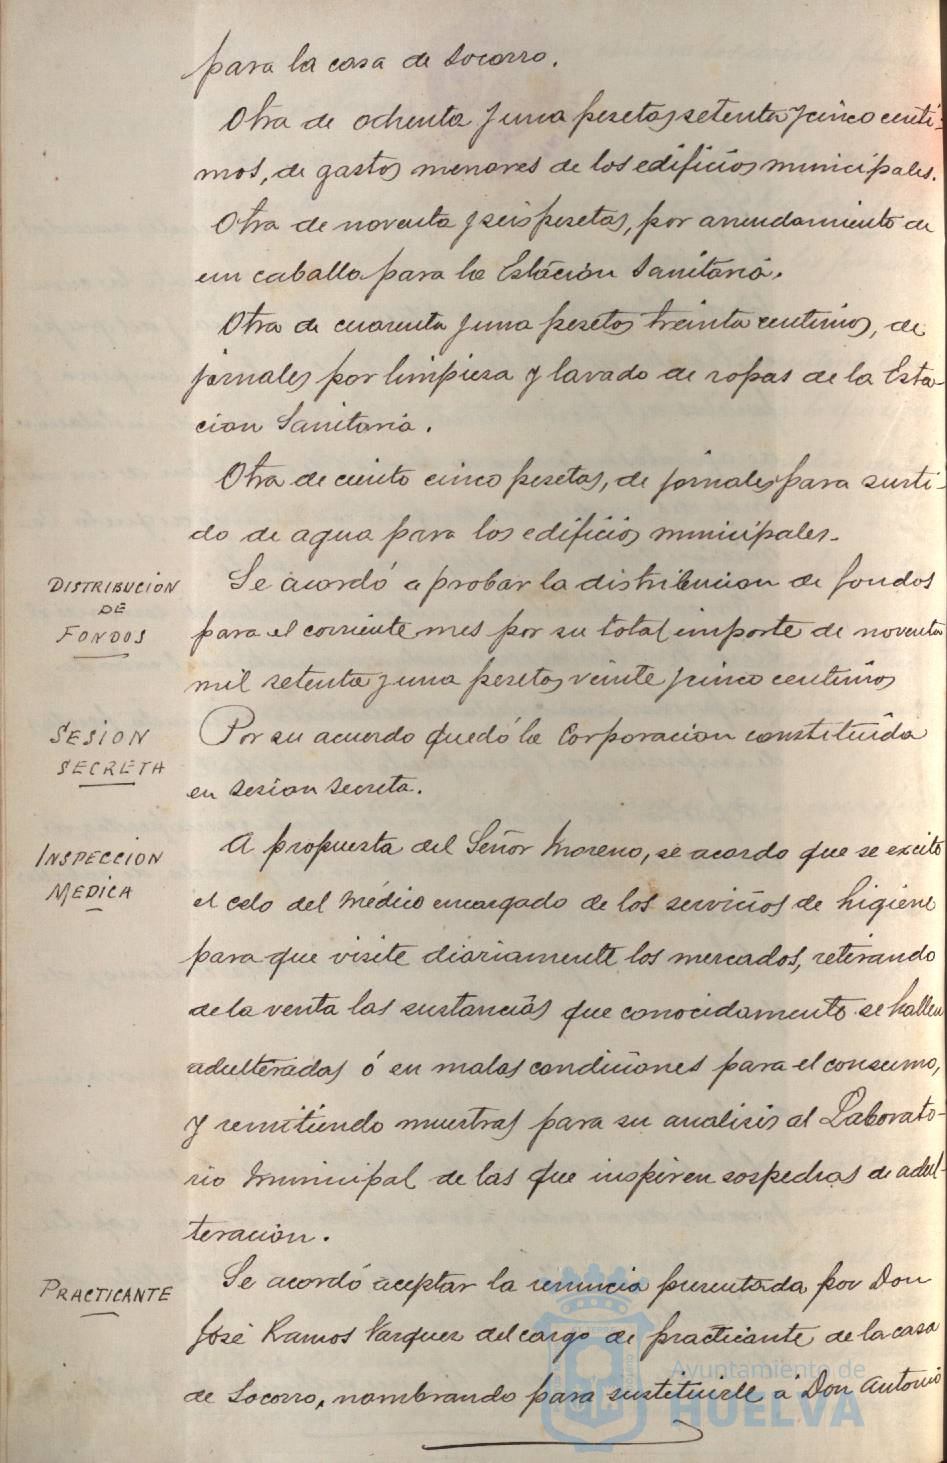 para la casa de Socorro.
Otra de ochenta y una pesetas setenta y cinco centi-
mos, de gastos menores de los edificios municipales.
Otra de noventa y seis pesetas, por arrendamiento de
un caballo para la Estación Sanitaria.
Otra de cuarenta y una pesetas treinta centimos, de
jornales por limpieza y lavado de ropas de la Esta-
cion Sanitaria.
Otra de ciento cinco pesetas, de jornales para surti-
do de agua para los edificios municipales.
DISTRIBUCION
DE
FONDOS
Se acordó aprobar la distribucion de fondos
para el corriente mes por su total importe de noventa
mil setenta y una pesetas veinte y cinco centimos
SESION
SECRETA
Por su acuerdo quedó la Corporacion constituida
en sesion secreta.
INSPECCION
MEDICA
A propuesta del Señor Moreno, se acordo que se excite
el celo del Médico encargado de los servicios de higiene
para que visite diariamente los mercados, retirando
de la venta las sustancias que conocidamente se hallen
adulteradas ó en malas condiciones para el consumo,
y remitiendo muestras para su analisis al Laborato-
rio Municipal de las que inspiren sospechas de adul-
teracion.
PRACTICANTE
Se acordó aceptar la renuncia presentada por Don
José Ramos Vazquez del cargo de practicante de la casa
de Socorro, nombrando para sustituirle a Don Antonio
Ayuntamiento de
HUELVA